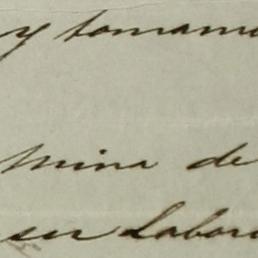 y tomamo
Mina de
su labor